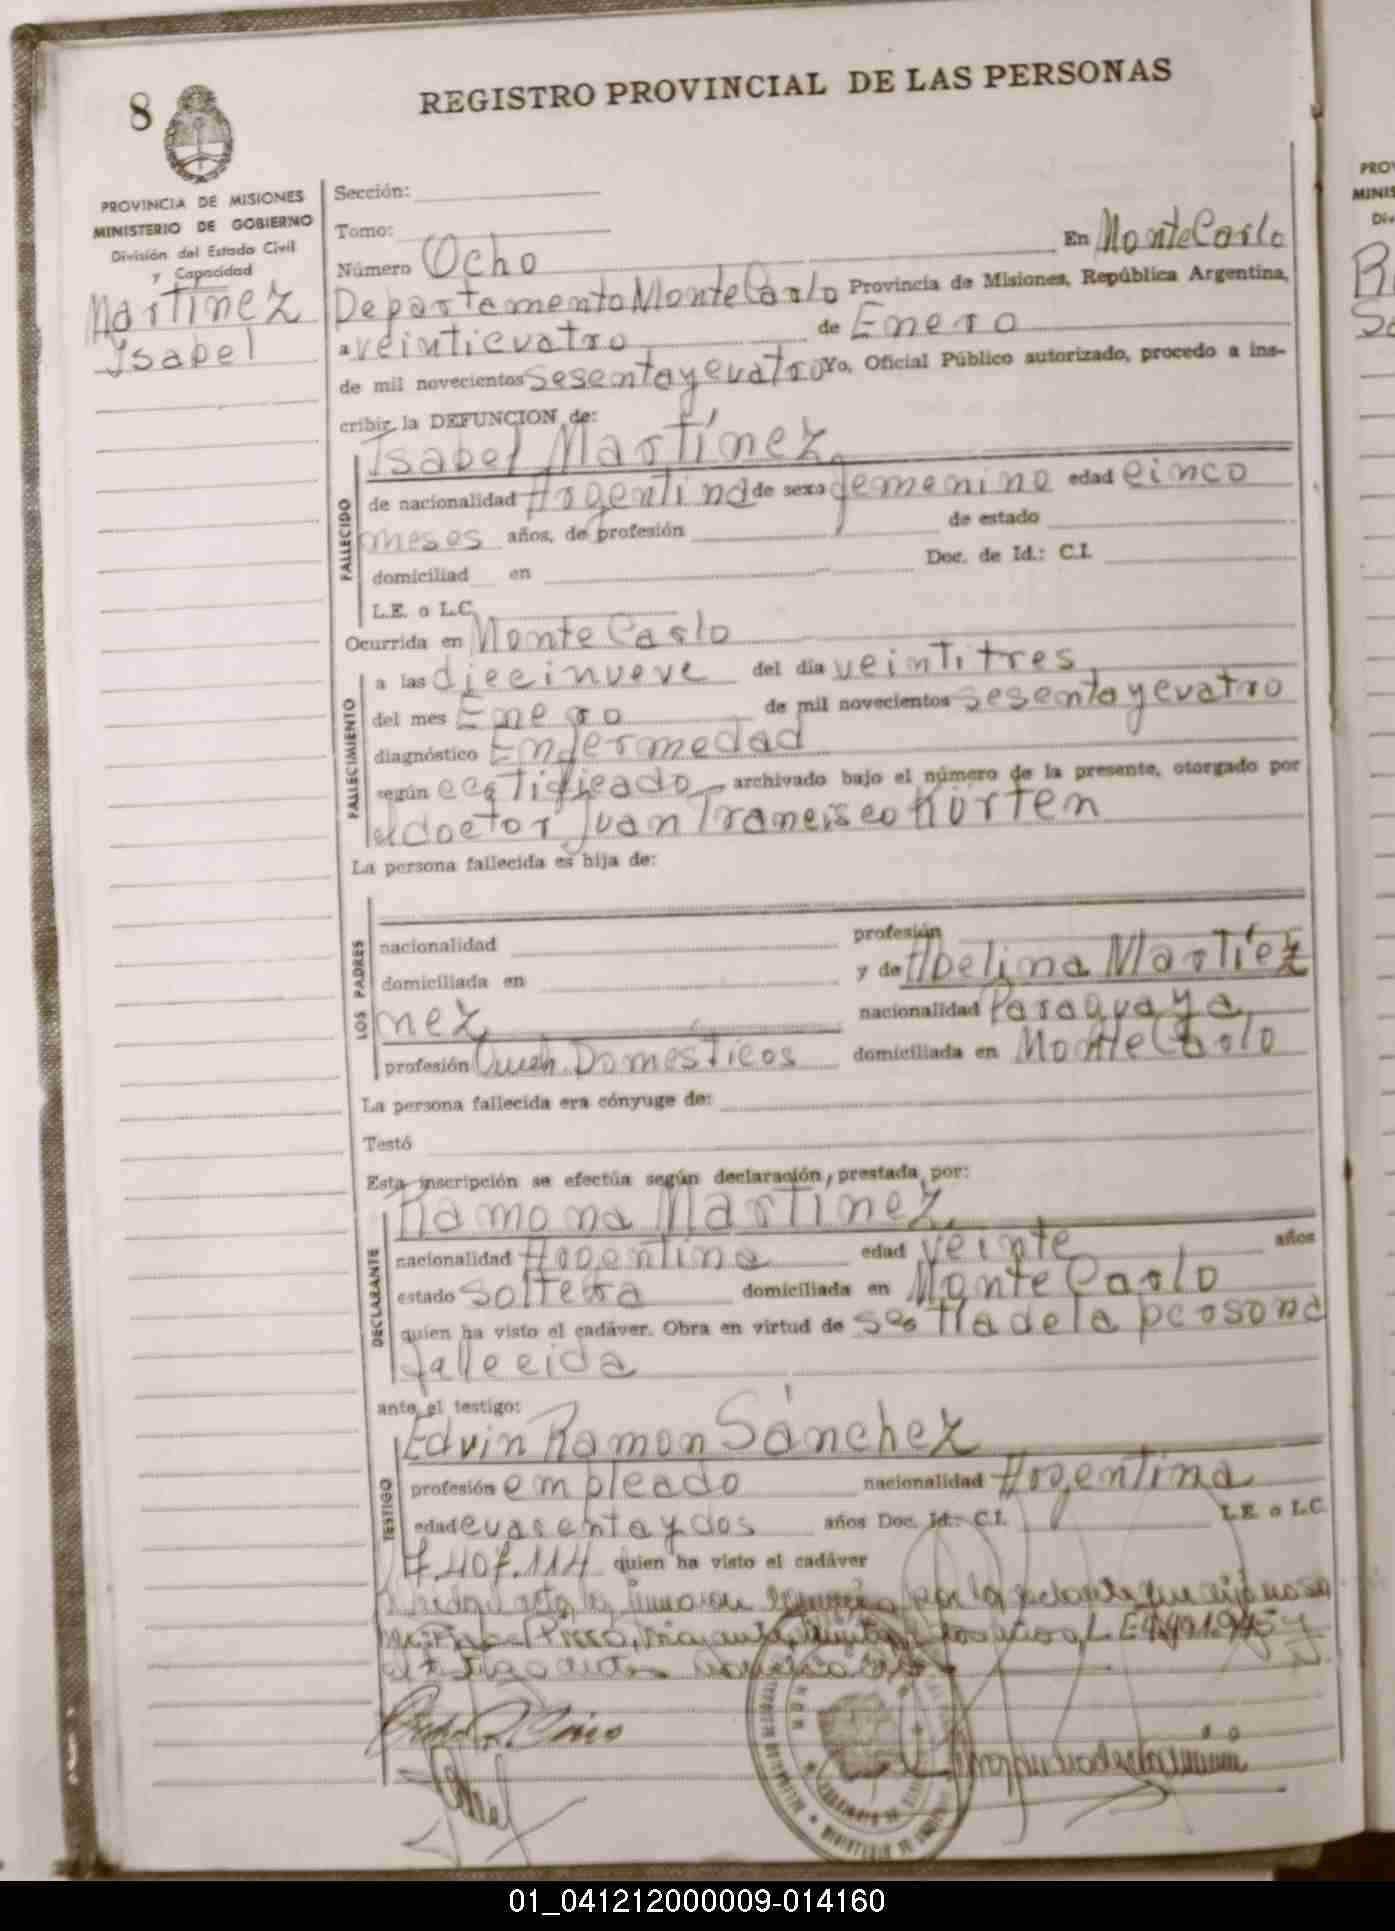 8
REGISTRO PROVINCIAL DE LAS PERSONAS
PROVINCIA DE MISIONES
MINISTERIO DE GOBIERNO
División del Estado Civil
y Capacidad
Martínez
Isabel
Sección:
Tomo:
Número Ocho En Monte Carlo
Departamento Monte Carlo Provincia de Misiones, República Argentina,
a veinticuatro de Enero
de mil novecientos sesenta y cuatro Yo, Oficial Público autorizado, procedo a ins-
cribir la DEFUNCION de:
Isabel Martínez
FALLECIDO
de nacionalidad Argentina de sexo femenino edad cinco
meses años, de profesión de estado
domiciliad en Doc. de Id.: C.I.
L.E. o L.C.
Ocurrida en Monte Carlo
FALLECIMIENTO
a las diecinueve del día veintitres
del mes Enero de mil novecientos sesenta y cuatro
diagnóstico Enfermedad
según certificado archivado bajo el número de la presente, otorgado por
el doctor Juan Francisco Körten
La persona fallecida es hija de:
LOS PADRES
nacionalidad profesión
domiciliada en y de Abelina Martíez
nez nacionalidad Paraguaya
profesión Queh. Domesticos domiciliada en Monte Carlo
La persona fallecida era cónyuge de:
Testó
Esta inscripción se efectúa según declaración, prestada por:
Ramona Martínez
DECLARANTE
nacionalidad Argentina edad veinte años
estado Soltera domiciliada en Monte Carlo
quien ha visto el cadáver. Obra en virtud de ser tia de la persona
fallecida
ante el testigo:
Edvin Ramon Sánchez
TESTIGO
profesión empleado nacionalidad Argentina
edad cuarenta y dos años Doc. Id.: C.I. L.E. o L.C.
7.407.114 quien ha visto el cadáver
por la
L E
01_041212000009-014160